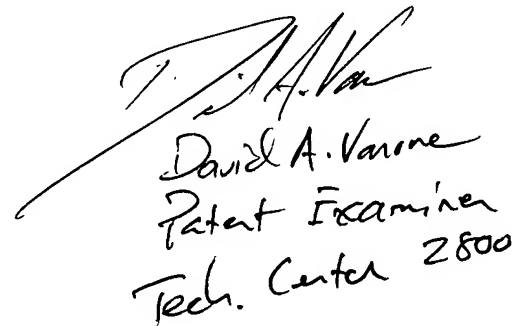 David A. Varone
Patent Examiner
Tech. Center 2800